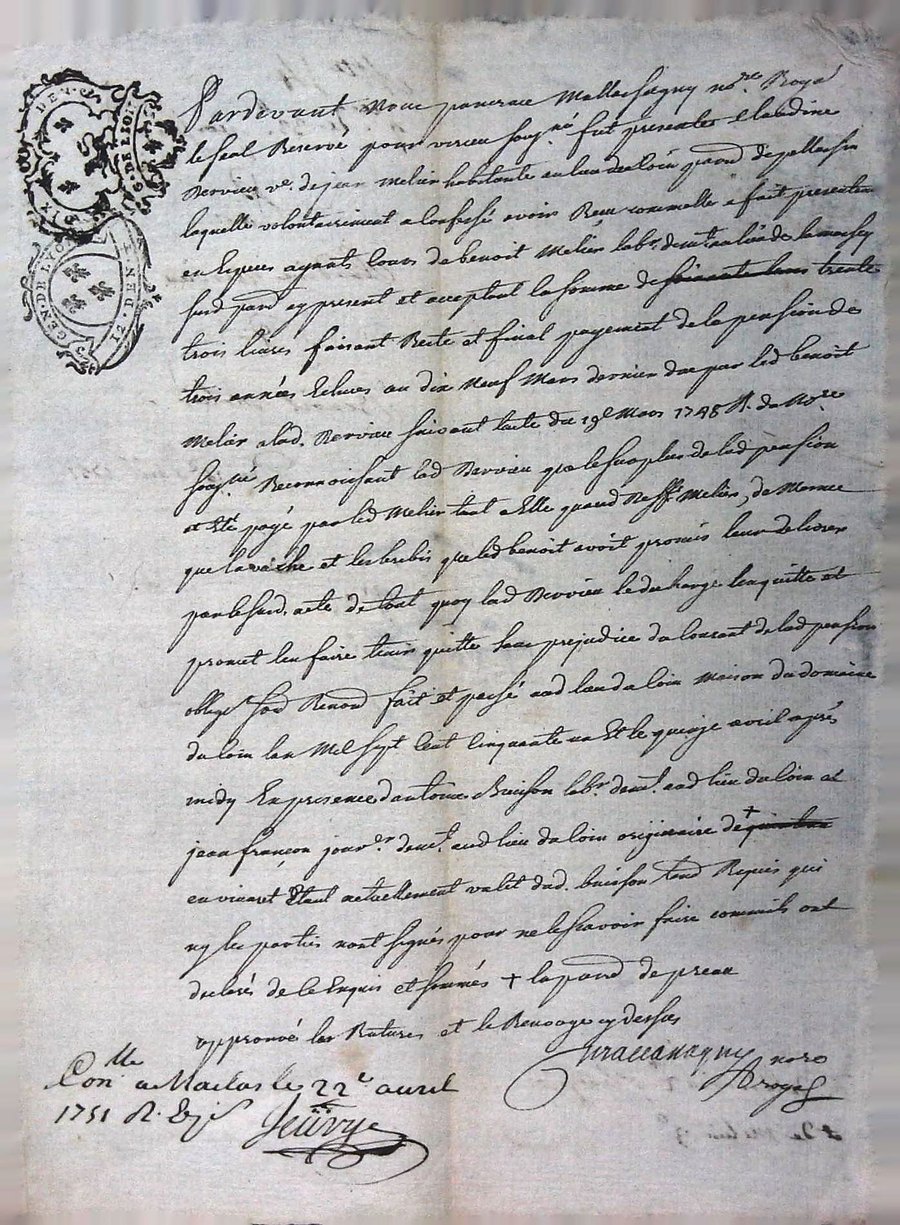 GEN. DE LYON
12. DEN
Pardevant Nous Mallassagny no.re Royal
le seal Reservé pour verieu soug.né fut presente Claudine
Bervieu v.e de jean Melier habitante au lieu de loin parr.d de pellussin
laquelle volontairement a confessé avoir Reçu comme elle a fait presentem
en Espèces ayants Cours de benoit Melier lab.r dem.t au lieu de
surd parr.d cy present et aceptant la somme de soixante trente
trois livres faisant Reste et final payement de la pension de
trois années Echues au dix neuf Mars dernier due par led benoit
Melier alad. Bervieu suivant lacte du 19e Mars 1748 R. de No.re
soug.né Reconnoissant lad Bervieu que le surplus de lad pension
at Eté payé par led Melier tant a Elle quaud Melier, de
que la vache et les brebis que led benoit avoit promis leur delivrer
par le surd. acte de tout quoy lad Bervieu le decharge len quitte et
promet len faire tenir quitte sans prejudice du Courant de lad pension
oblig.t soud Renond fait et passé aud lieu du loin maison du domaine
du loin lan Mil sept Cent Cinquante un Et le quinze avril après
midy En presence dantoine Buisson lab.r dem.t aud lieu du loin et
jean françon jour.er dem.t aud lieu du loin originaire de +
en vivaret Etant actuellement valet dud. buisson qui
ny les parties nont signés pour ne le sçavoir faire comm'ils ont
declarés de ce Enquis et sommés + la parr.d de preau
approuvé les Ratures et le Renvoy cy dessus
Mallassagny nore
Royal
Con.lle a Maclas le 22e avril
1751 R.